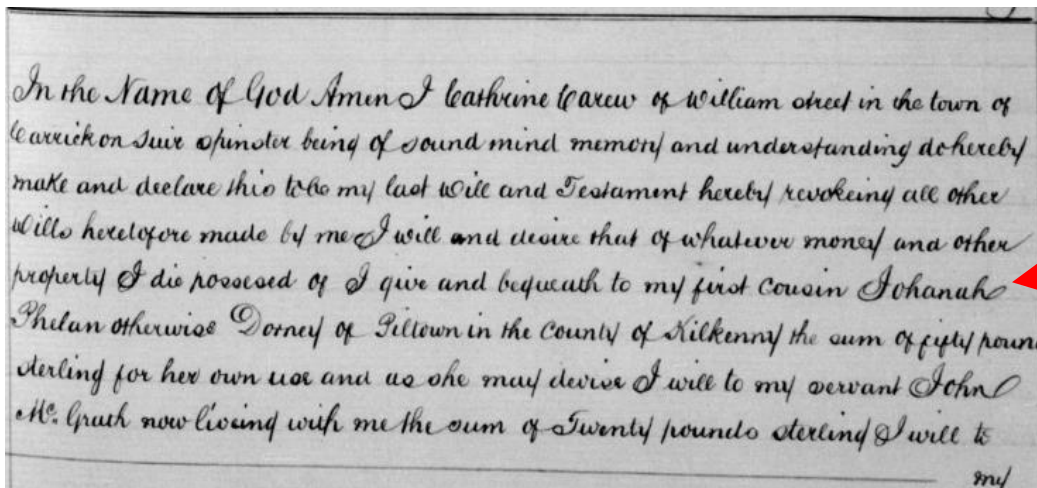 In the Name of God Amen I Cathrine Carew of William street in the town of
Carrick on Suir spinster being of sound mind memory and understanding do hereby
make and declare this to be my last Will and Testament hereby revokeing all other
Wills heretofore made by me I will and desire that of whatever money and other
property I die possesed of I give and bequeath to my first Cousin Johanah
Phelan otherwise Dorney of Piltown in the County of Kilkenny the sum of fifty poun
sterling for her own use and as she may devise I will to my servant John
Mc. Grath now liveing with me the sum of Twenty pounds sterling I will to
my